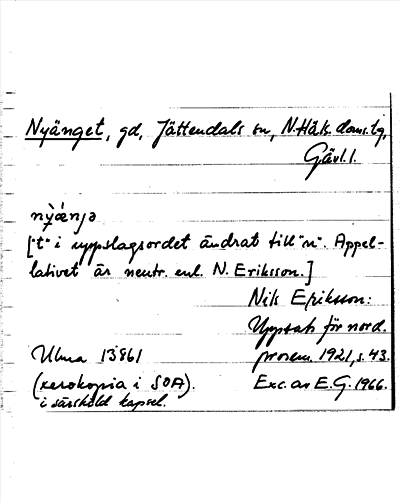 Nyänget, gd, Jättendals sn, N.Häls. doms.tg,
Gävl.l.
["t" i uppslagsordet ändrat till "n". Appel-
lativet är neutr. enl. N. Eriksson.]
Nils Eriksson:
Uppsats för nord.
prosem. 1921, s. 43.
Exc. av E.G. 1966.
Ulma 13861
(xerokopia i SOA).
i särskild kapsel.